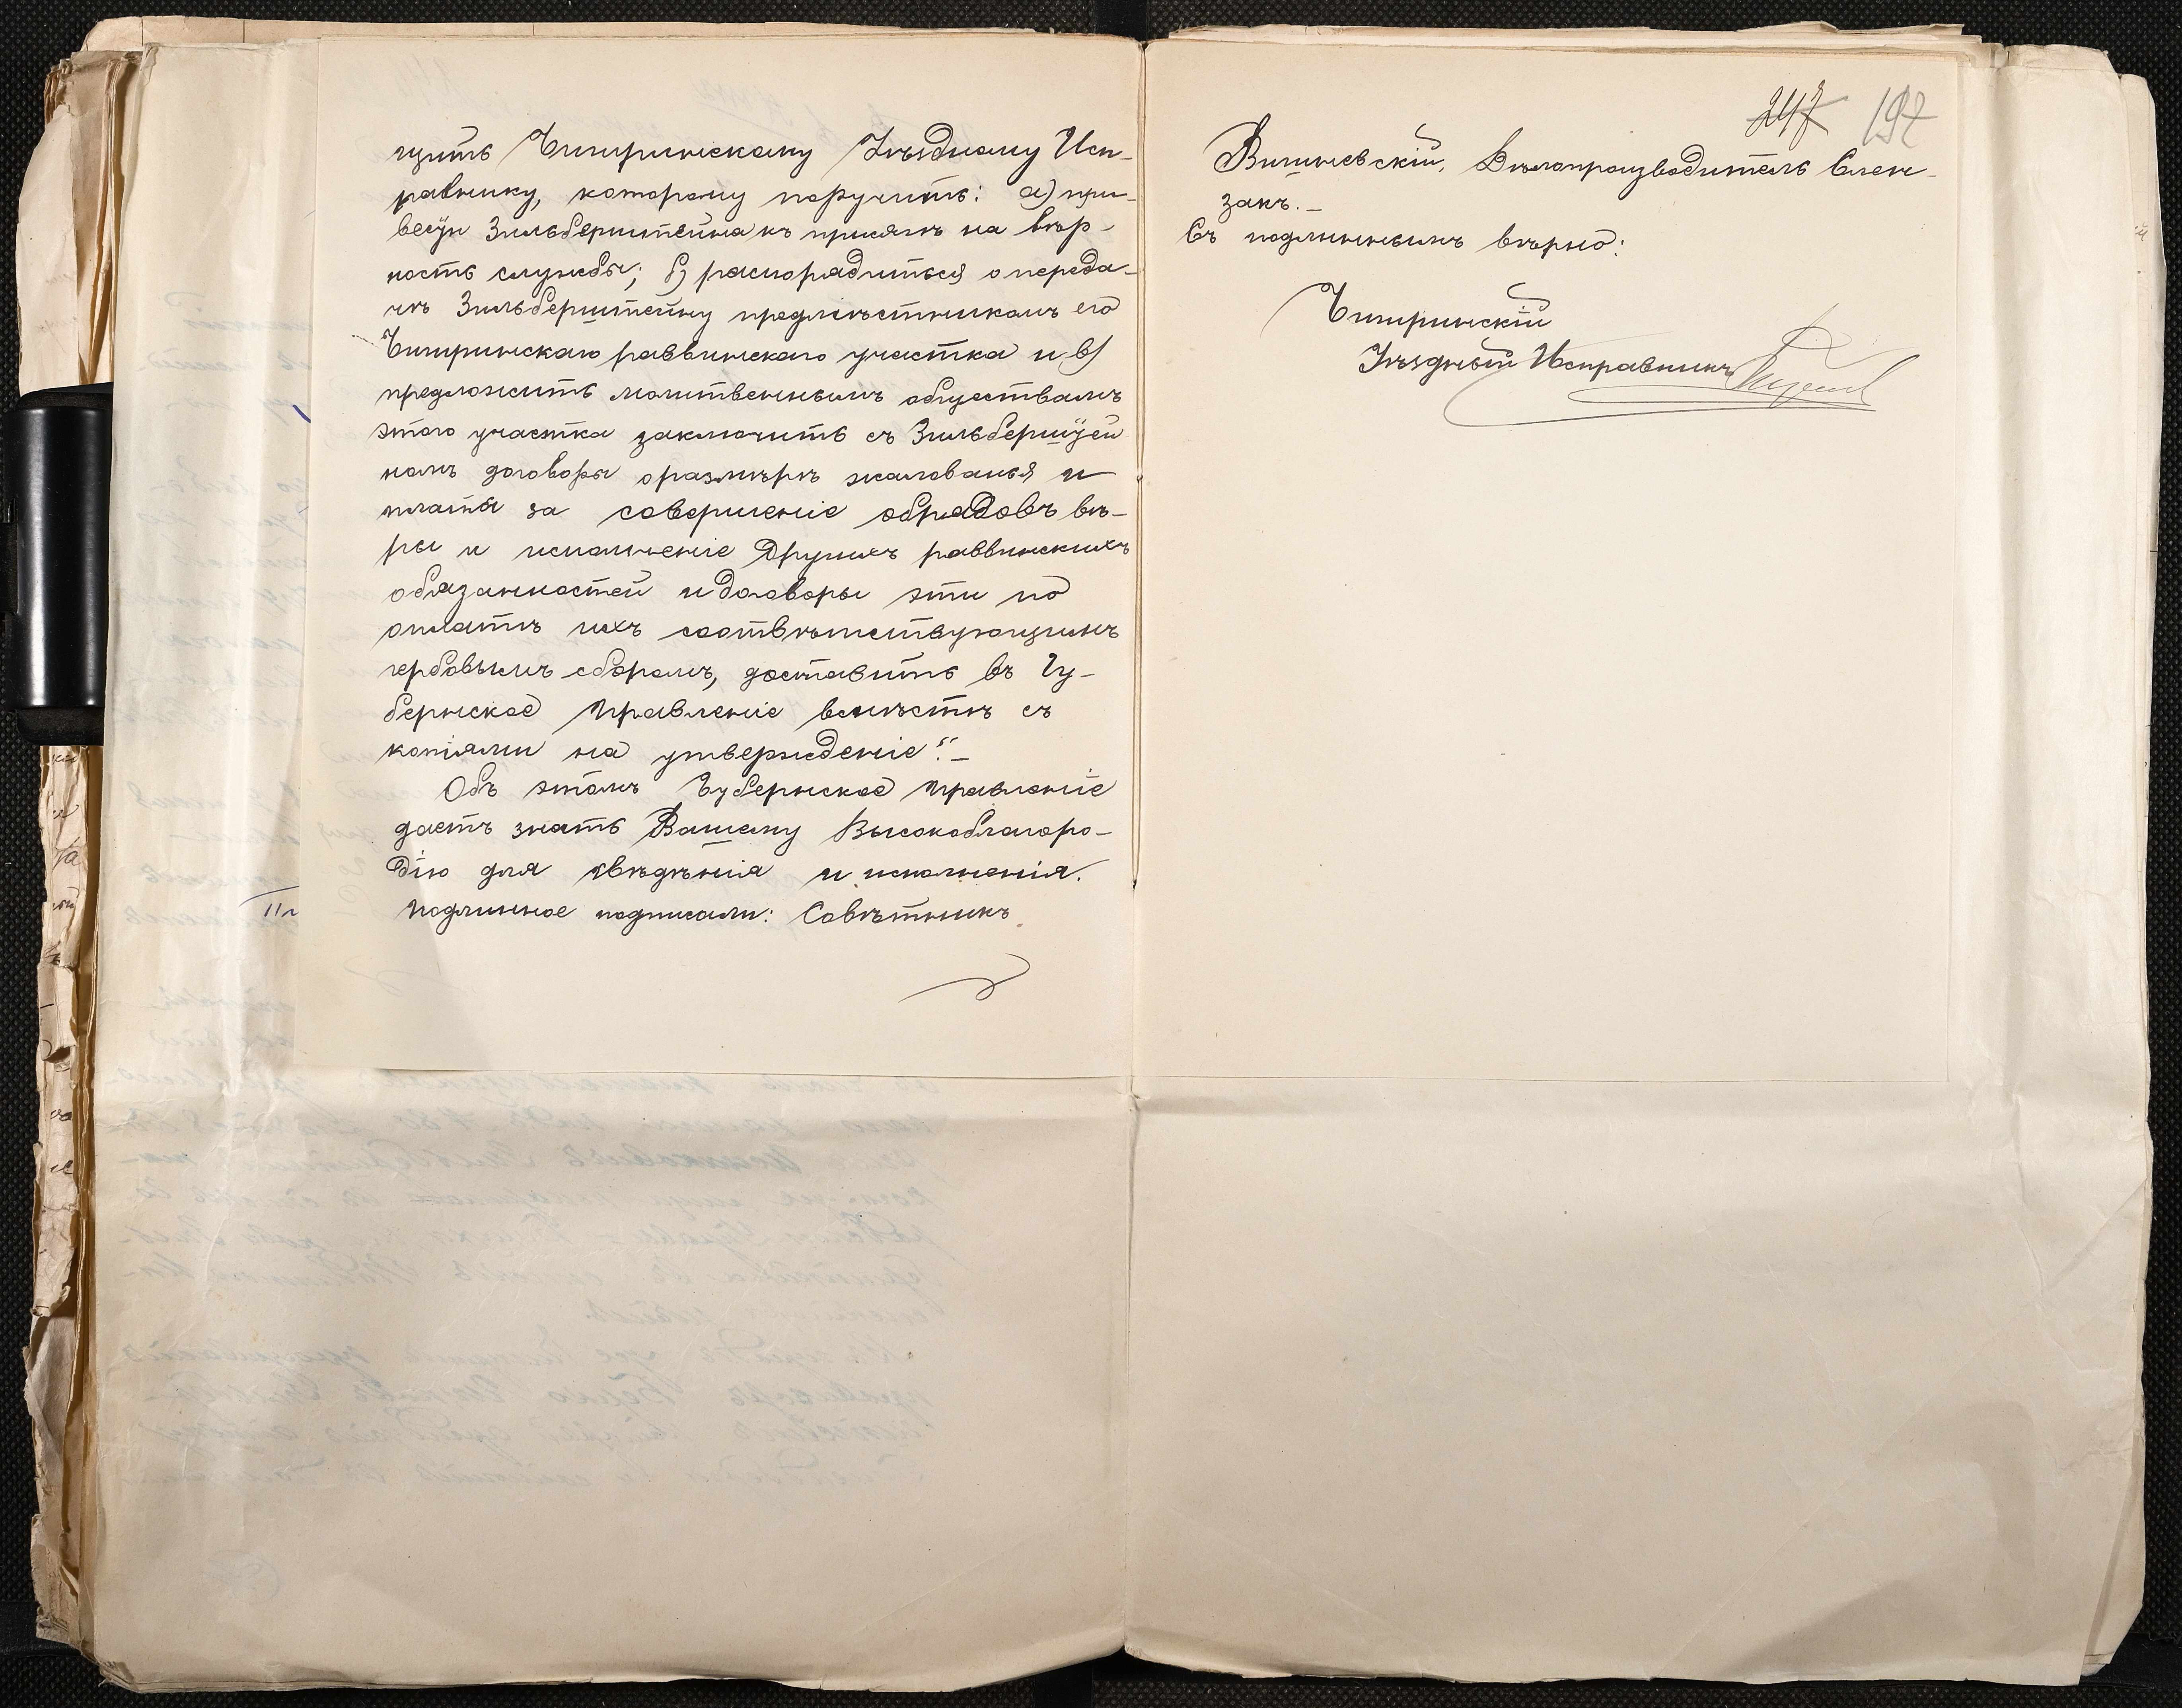 щить Чигиринскому Уѣздному Исп-
равнику, которому поручить: а) при-
весть Зильберштейна къ присягѣ на вѣр-
ность службы; б) распорядиться о переда-
чѣ Зильберштейну предмѣстникомъ его
Чигиринскаго раввинскаго участка и в)
предложить молитвеннымъ обществамъ
этого участка заключить съ Зильберштей
номъ договоры о размѣрѣ жалованья и
платы за совершеніе обрядовъ вѣ-
ры и исполненіе другихъ раввинскихъ
обязанностей и договоры эти по
оплатѣ ихъ соотвѣтствующимъ
гербовымъ сборомъ, доставить въ Гу-
бернское Правленіе вмѣстѣ съ
копіями на утвержденіе".-
Объ этомъ Губернское Правленіе
даетъ знать Вашему Высокоблагоро-
дію для свѣдѣнія и исполненія.
Подлинное подписали: Совѣтникъ
247 197
Вишневскій, Дѣлопроизводитель Слен-
закъ.-
Съ подлиннымъ вѣрно:
Чигиринскій
Уѣздный Исправникъ